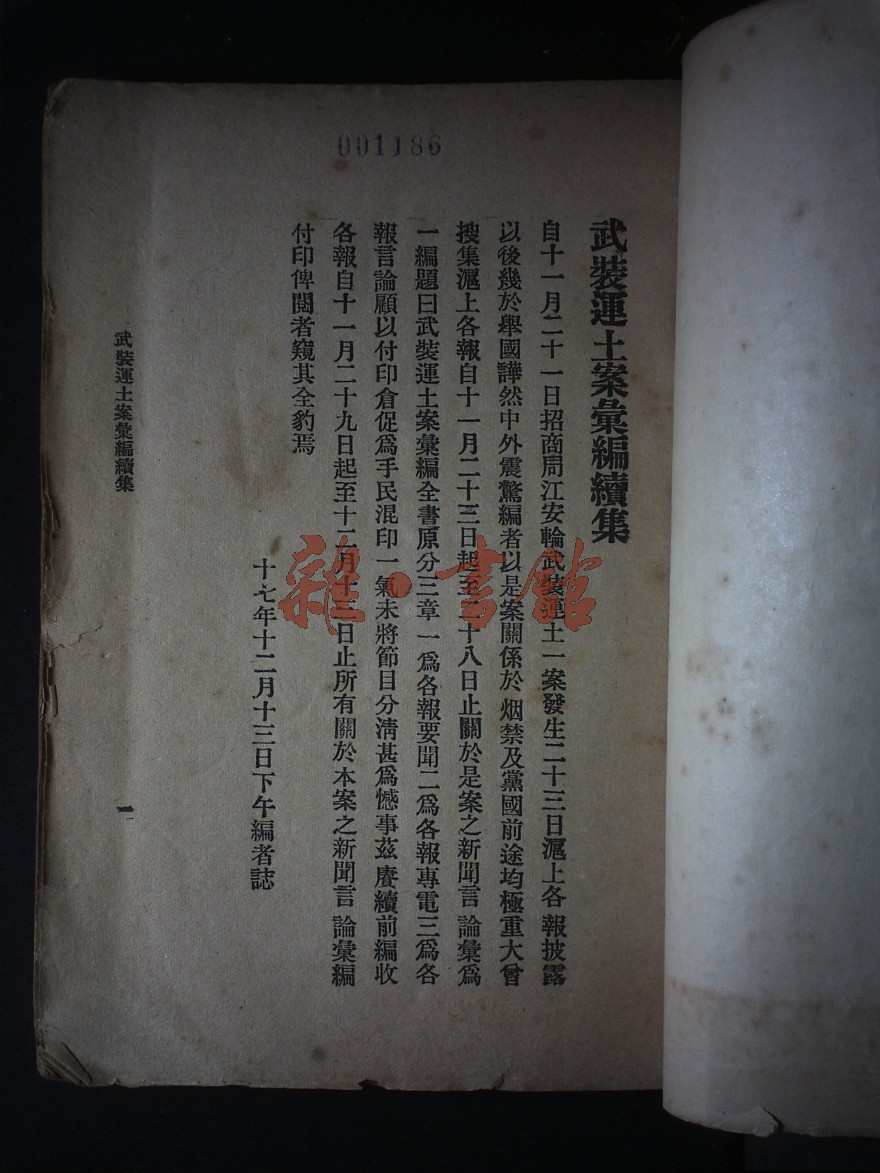 001186
武裝運土案彙編續集
自十一月二十一日招商局江安輪武裝運土一案發生二十三日滬上各報披露
以後幾於舉國譁然中外震驚編者以是案關係於烟禁及黨國前途均極重大曾
搜集滬上各報自十一月二十三日起至二十八日止關於是案之新聞言論彙爲
一編題曰武裝運土案彙編全書原分三章一爲各報要聞二爲各報專電三爲各
報言論顧以付印倉促爲手民混印一氣未將節目分淸甚爲憾事茲賡續前編收
各報自十一月二十九日起至十二月十三日止所有關於本案之新聞言論彙編
付印俾閱者窺其全豹焉
十七年十二月十三日下午編者誌
武裝運土案彙編續集
一
雜·書館